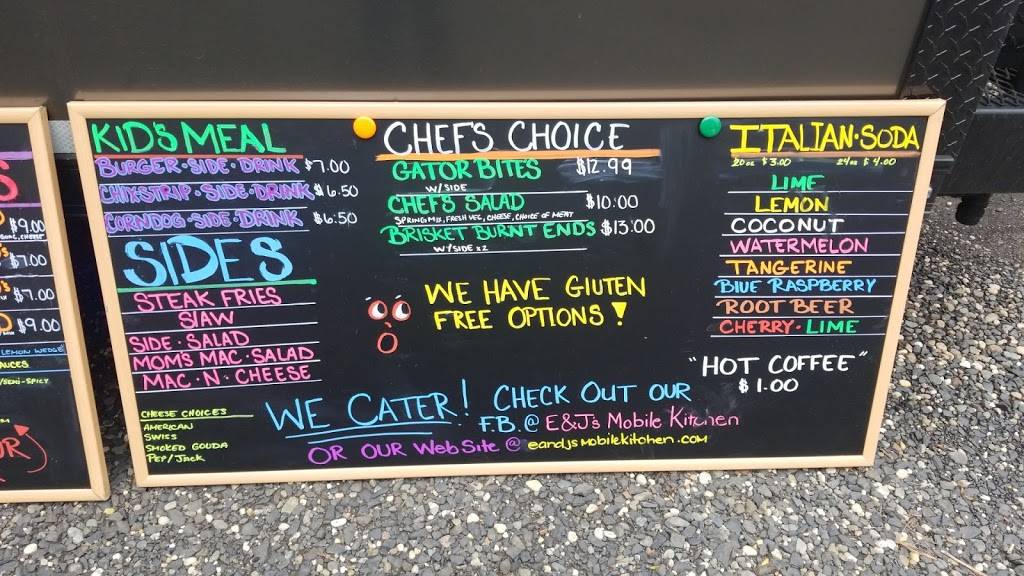 S
$9.00
$7.00
$7.00
$9.00
LEMON WEDGE
AUCES
/SEMI-SPICY
UR
KID'S MEAL
BURGER · SIDE · DRINK $7.00
CHIXSTRIP · SIDE · DRINK $6.50
CORNDOG · SIDE · DRINK $6.50
SIDES
STEAK FRIES
SLAW
SIDE · SALAD
MOMS MAC · SALAD
MAC · N · CHEESE
CHEESE CHOICES
AMERICAN
SWISS
SMOKED GOUDA
PEP/JACK
CHEF'S CHOICE
GATOR BITES $12.99
W/SIDE
CHEF'S SALAD $10.00
SPRING MIX, FRESH VEG, CHEESE, CHOICE OF MEAT
BRISKET BURNT ENDS $13.00
W/SIDE x2
WE HAVE GLUTEN
FREE OPTIONS!
ITALIAN · SODA
20oz $3.00 24oz $4.00
LIME
LEMON
COCONUT
WATERMELON
TANGERINE
BLUE RASPBERRY
ROOT BEER
CHERRY · LIME
"HOT COFFEE"
$1.00
WE CATER! CHECK OUT OUR
F.B. @ E&J's Mobile Kitchen
OR OUR WebSite @ eandjsmobilekitchen.com